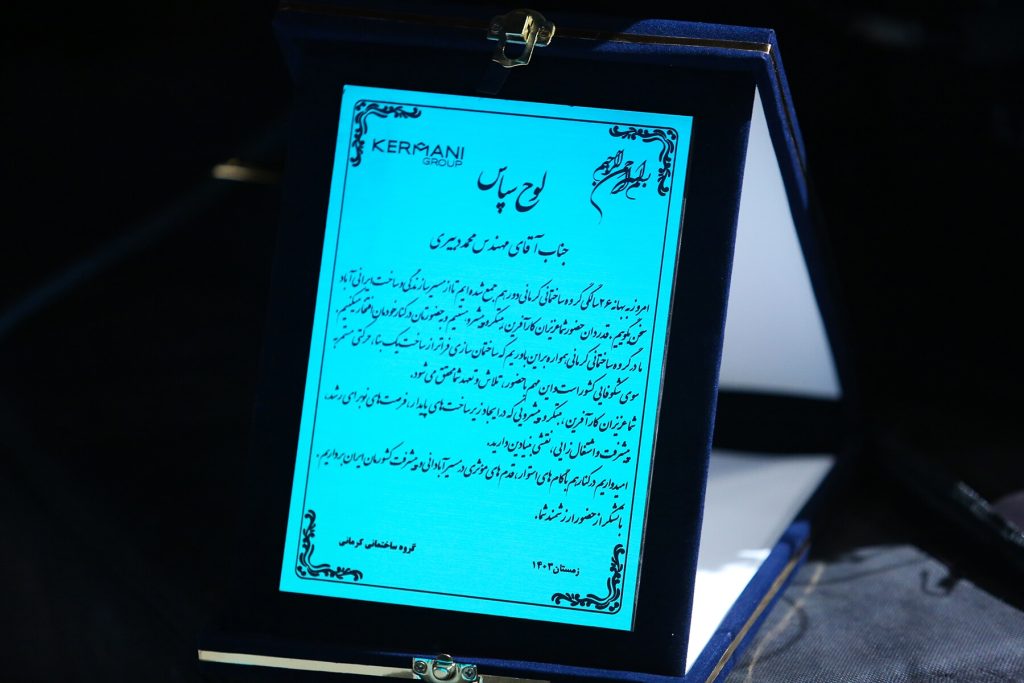 KERMANI
GROUP
بسم الله الرحمن الرحیم
لوح سپاس
جناب آقای مهندس محمد دبیری
امروز به بهانه ۲۶ سالگی گروه ساختمانی کرمانی دور هم جمع شده ایم تا از مسیر سازندگی و ساخت ایرانی آباد
سخن بگوییم. قدردان حضور شما عزیزان کارآفرین، مبتکر و پیشرو، هستیم و به حضورتان در کنار خودمان افتخار میکنیم.
ما در گروه ساختمانی کرمانی همواره براین باوریم که ساختمان سازی فراتر از ساخت یک بنا، حرکتی مستمر به
سوی شکوفائی کشور است و این مهم با حضور، تلاش و تعهد شما محقق می شود.
شما عزیزان کارآفرین، مبتکر و پیشرویی که در ایجاد زیرساخت های پایدار، فرصت های نو برای رشد،
پیشرفت و اشتغال زایی، نقشی بنیادین دارید.
امیدواریم در کنار هم با گام های استوار، قدم های مؤثری در مسیر آبادانی و پیشرفت کشورمان ایران برداریم.
با تشکر از حضور ارزشمند شما.
گروه ساختمانی کرمانی
زمستان ۱۴۰۳